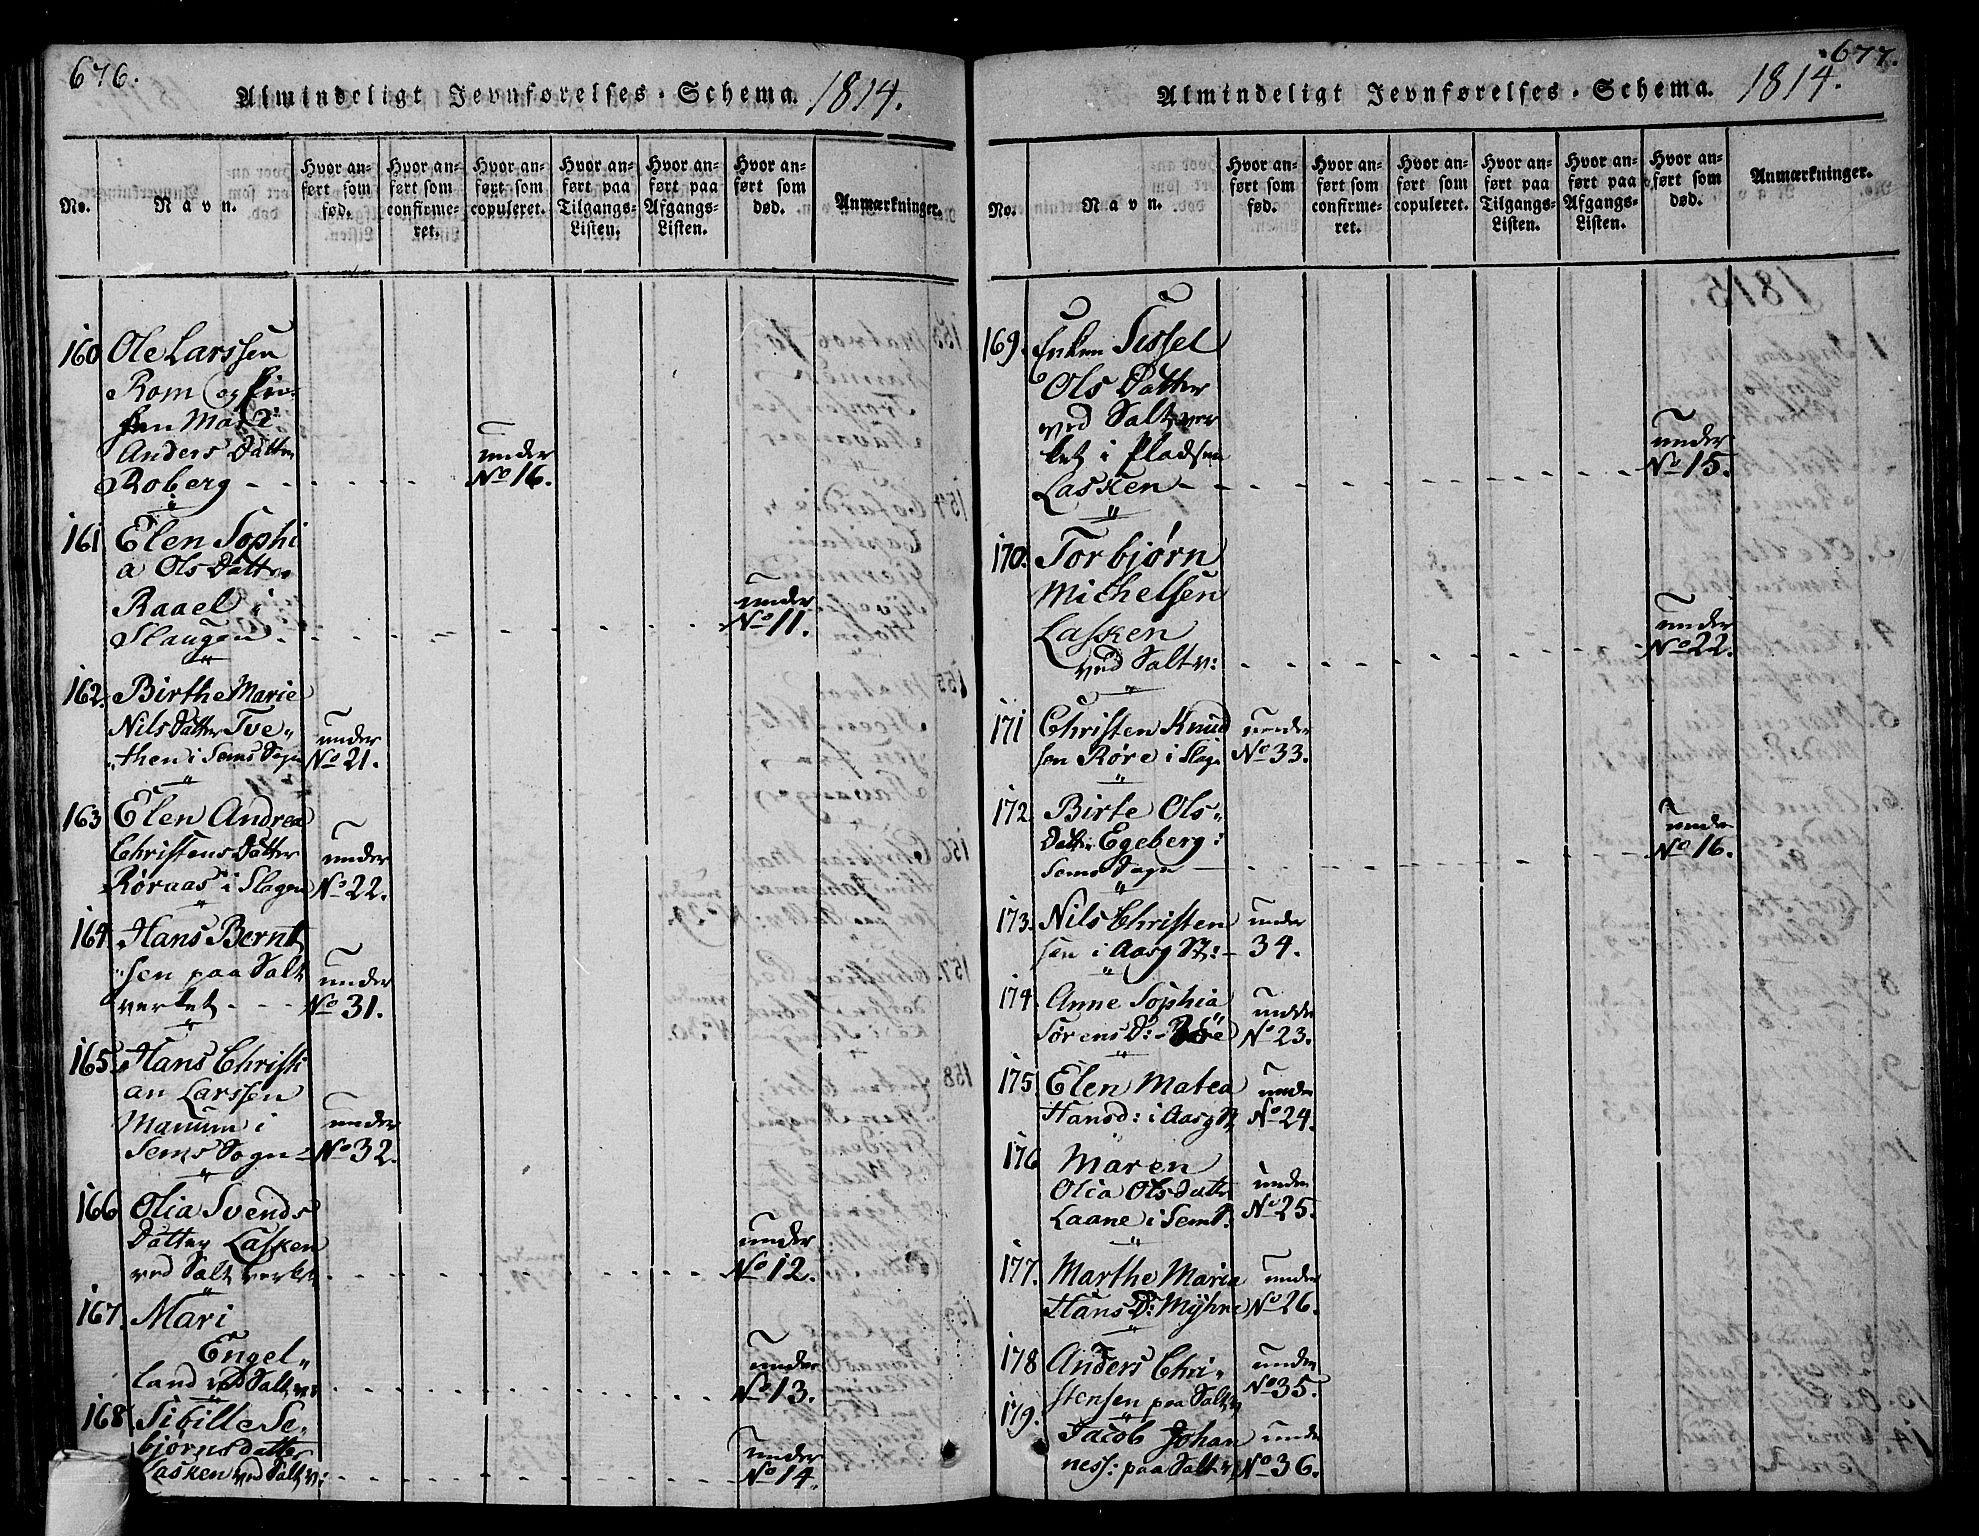 676.
Almindeligt Jevnførelses-Schema. 1814.
No.
Navn.
Hvor an-
ført som
fød.
Hvor an-
ført som
confirme-
ret.
Hvor an-
ført som
copuleret.
Hvor an-
ført paa
Tilgangs-
Listen.
Hvor an-
ført paa
Afgangs-
Listen.
Hvor an-
ført som
død.
Anmærkninger.
160 Ole Larssen
Rom og Pi-
gen Mari
Anders Datter
Roberg - under No 16.
161 Elen Sophi
a Ols Datter
Raael i
Slaugen - under No 11.
162. Birthe Marie
Nils Datter Tve„
then i Sems Sogn under No 21.
163 Elen Andrea
Christens Datter
Røraas i Slagen under No 22.
164. Hans Bernt
sen paa Salt
verket - under No 31.
165. Hans Christi
an Larssen
Manum i
Sems Sogn - under No 32.
166 Olia Svends
Datter Lasken
ved Salt verket - under No 12.
167. Mari
Engel„
land ved Saltv: - under No 13.
168 Sibille Se„
bjørnsdatter
Lasken ved Saltv: - under No 14.
677.
Almindeligt Jevnførelses-Schema. 1814.
No.
Navn.
Hvor an-
ført som
fød.
Hvor an-
ført som
confirme-
ret.
Hvor an-
ført som
copuleret.
Hvor an-
ført paa
Tilgangs-
Listen.
Hvor an-
ført paa
Afgangs-
Listen.
Hvor an-
ført som
død.
Anmærkninger.
169. Enken Sissel
Ols Datter
ved Saltver
ket i Pladsen
Lasken - under No 15.
170. Torbjørn
Michelsen
Lasken
ved Saltv: - under No 22.
171 Christen Knud
sen Røre i Slag: under No 33.
172. Birte Ols„
Datter Egeberg i
Sems Sogn - under No 16.
173. Nils Christen
sen i Aasg St: - under 34.
174. Anne Sophia
Sørens D: under No 23.
175. Elen Matea
Hansd: i Aasg St under No 24.
176 Maren
Olia Olsdatter
Laane i Sem S: under No 25.
177. Marthe Maria
Hans D: Myhre under No 26.
178 Anders Chri„
stensen paa Saltv under No 35.
179. Jacob Johan
ness: paa Saltv under No 36.